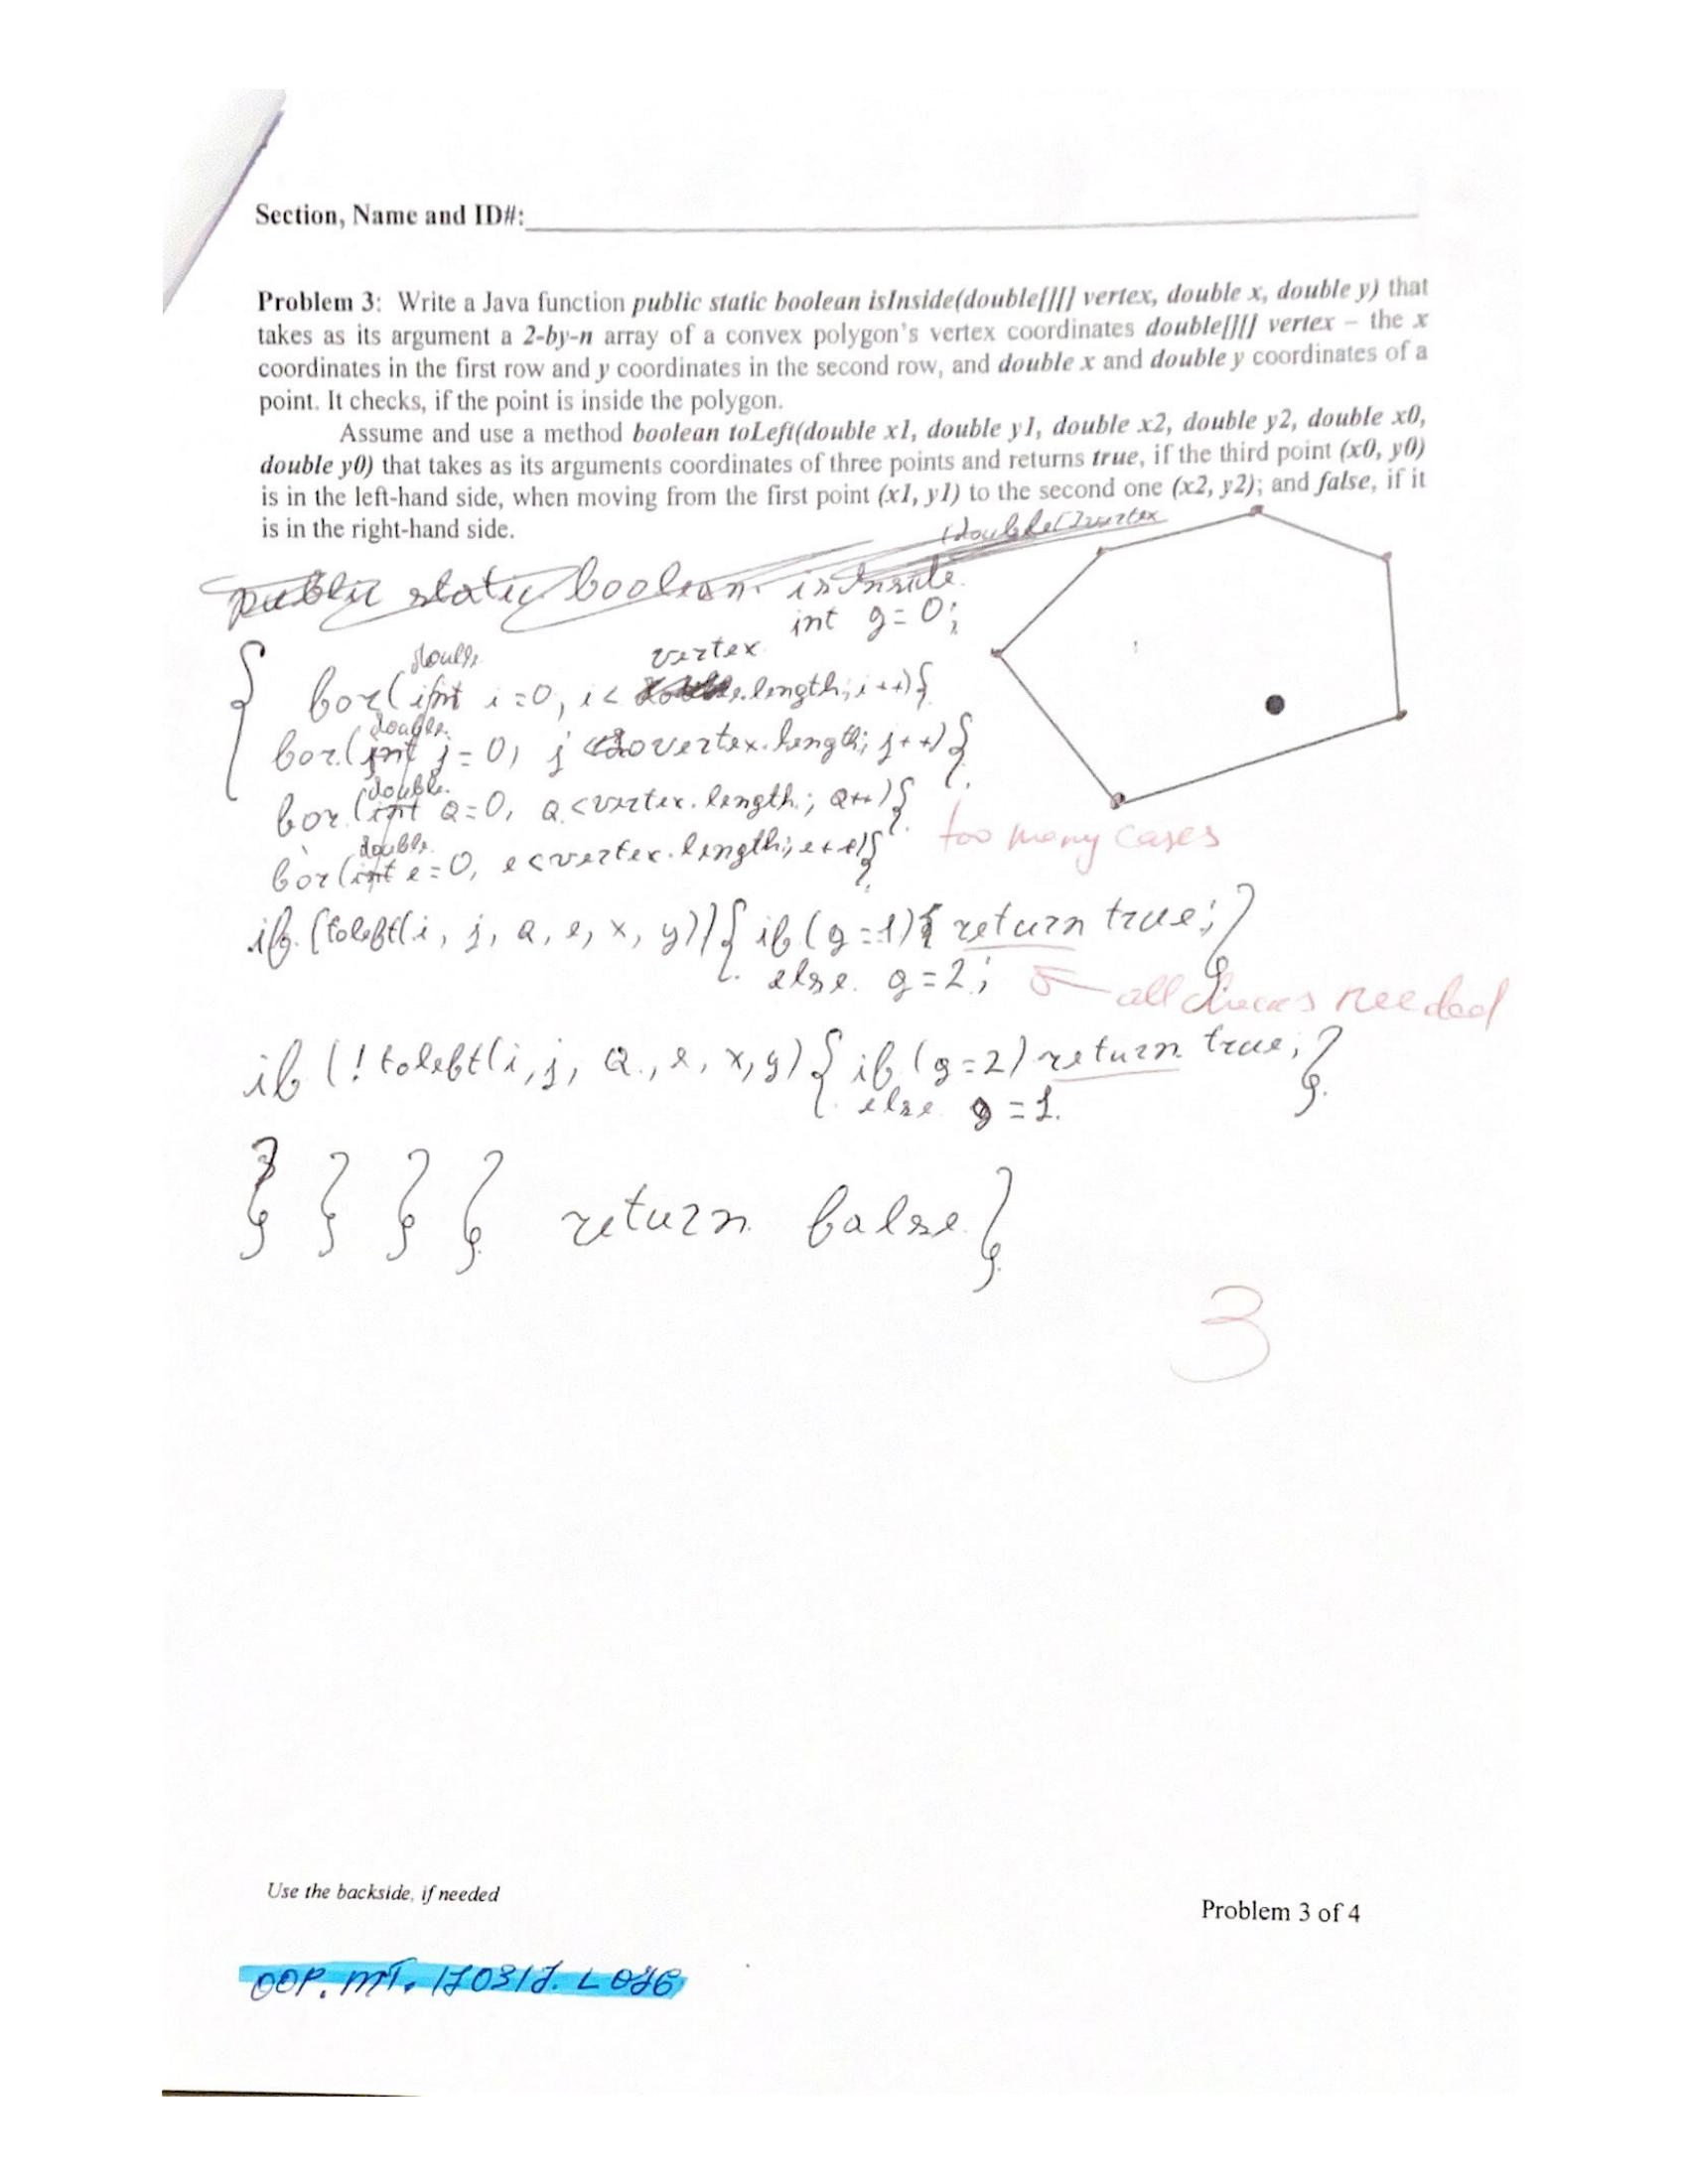 Section, Name and ID#:
Problem 3: Write a Java function public static boolean isInside(double[][] vertex, double x, double y) that
takes as its argument a 2-by-n array of a convex polygon's vertex coordinates double[][] vertex – the x
coordinates in the first row and y coordinates in the second row, and double x and double y coordinates of a
point. It checks, if the point is inside the polygon.
Assume and use a method boolean toLeft(double x1, double y1, double x2, double y2, double x0,
double y0) that takes as its arguments coordinates of three points and returns true, if the third point (x0, y0)
is in the left-hand side, when moving from the first point (x1, y1) to the second one (x2, y2); and false, if it
is in the right-hand side.
(double[] vertex
public static boolean isInside
int g=0;
double vertex
{ for(int i=0, i< .length; i++){
double
for(int j=0, j < vertex.length; j++){
double
for(int a=0, a<vertex.length; a++){
too many cases
double
for(int e=0, e<vertex.length; e++){
if (toleft(i, j, a, e, x, y)){ if (g=1){ return true;}
else g=2;
all checks needed
if (!toleft(i, j, a, e, x, y) { if (g=2) return true;}
else g=1.
} } } } return false}
3
Use the backside, if needed
Problem 3 of 4
OOP. MT. 170317. L 076